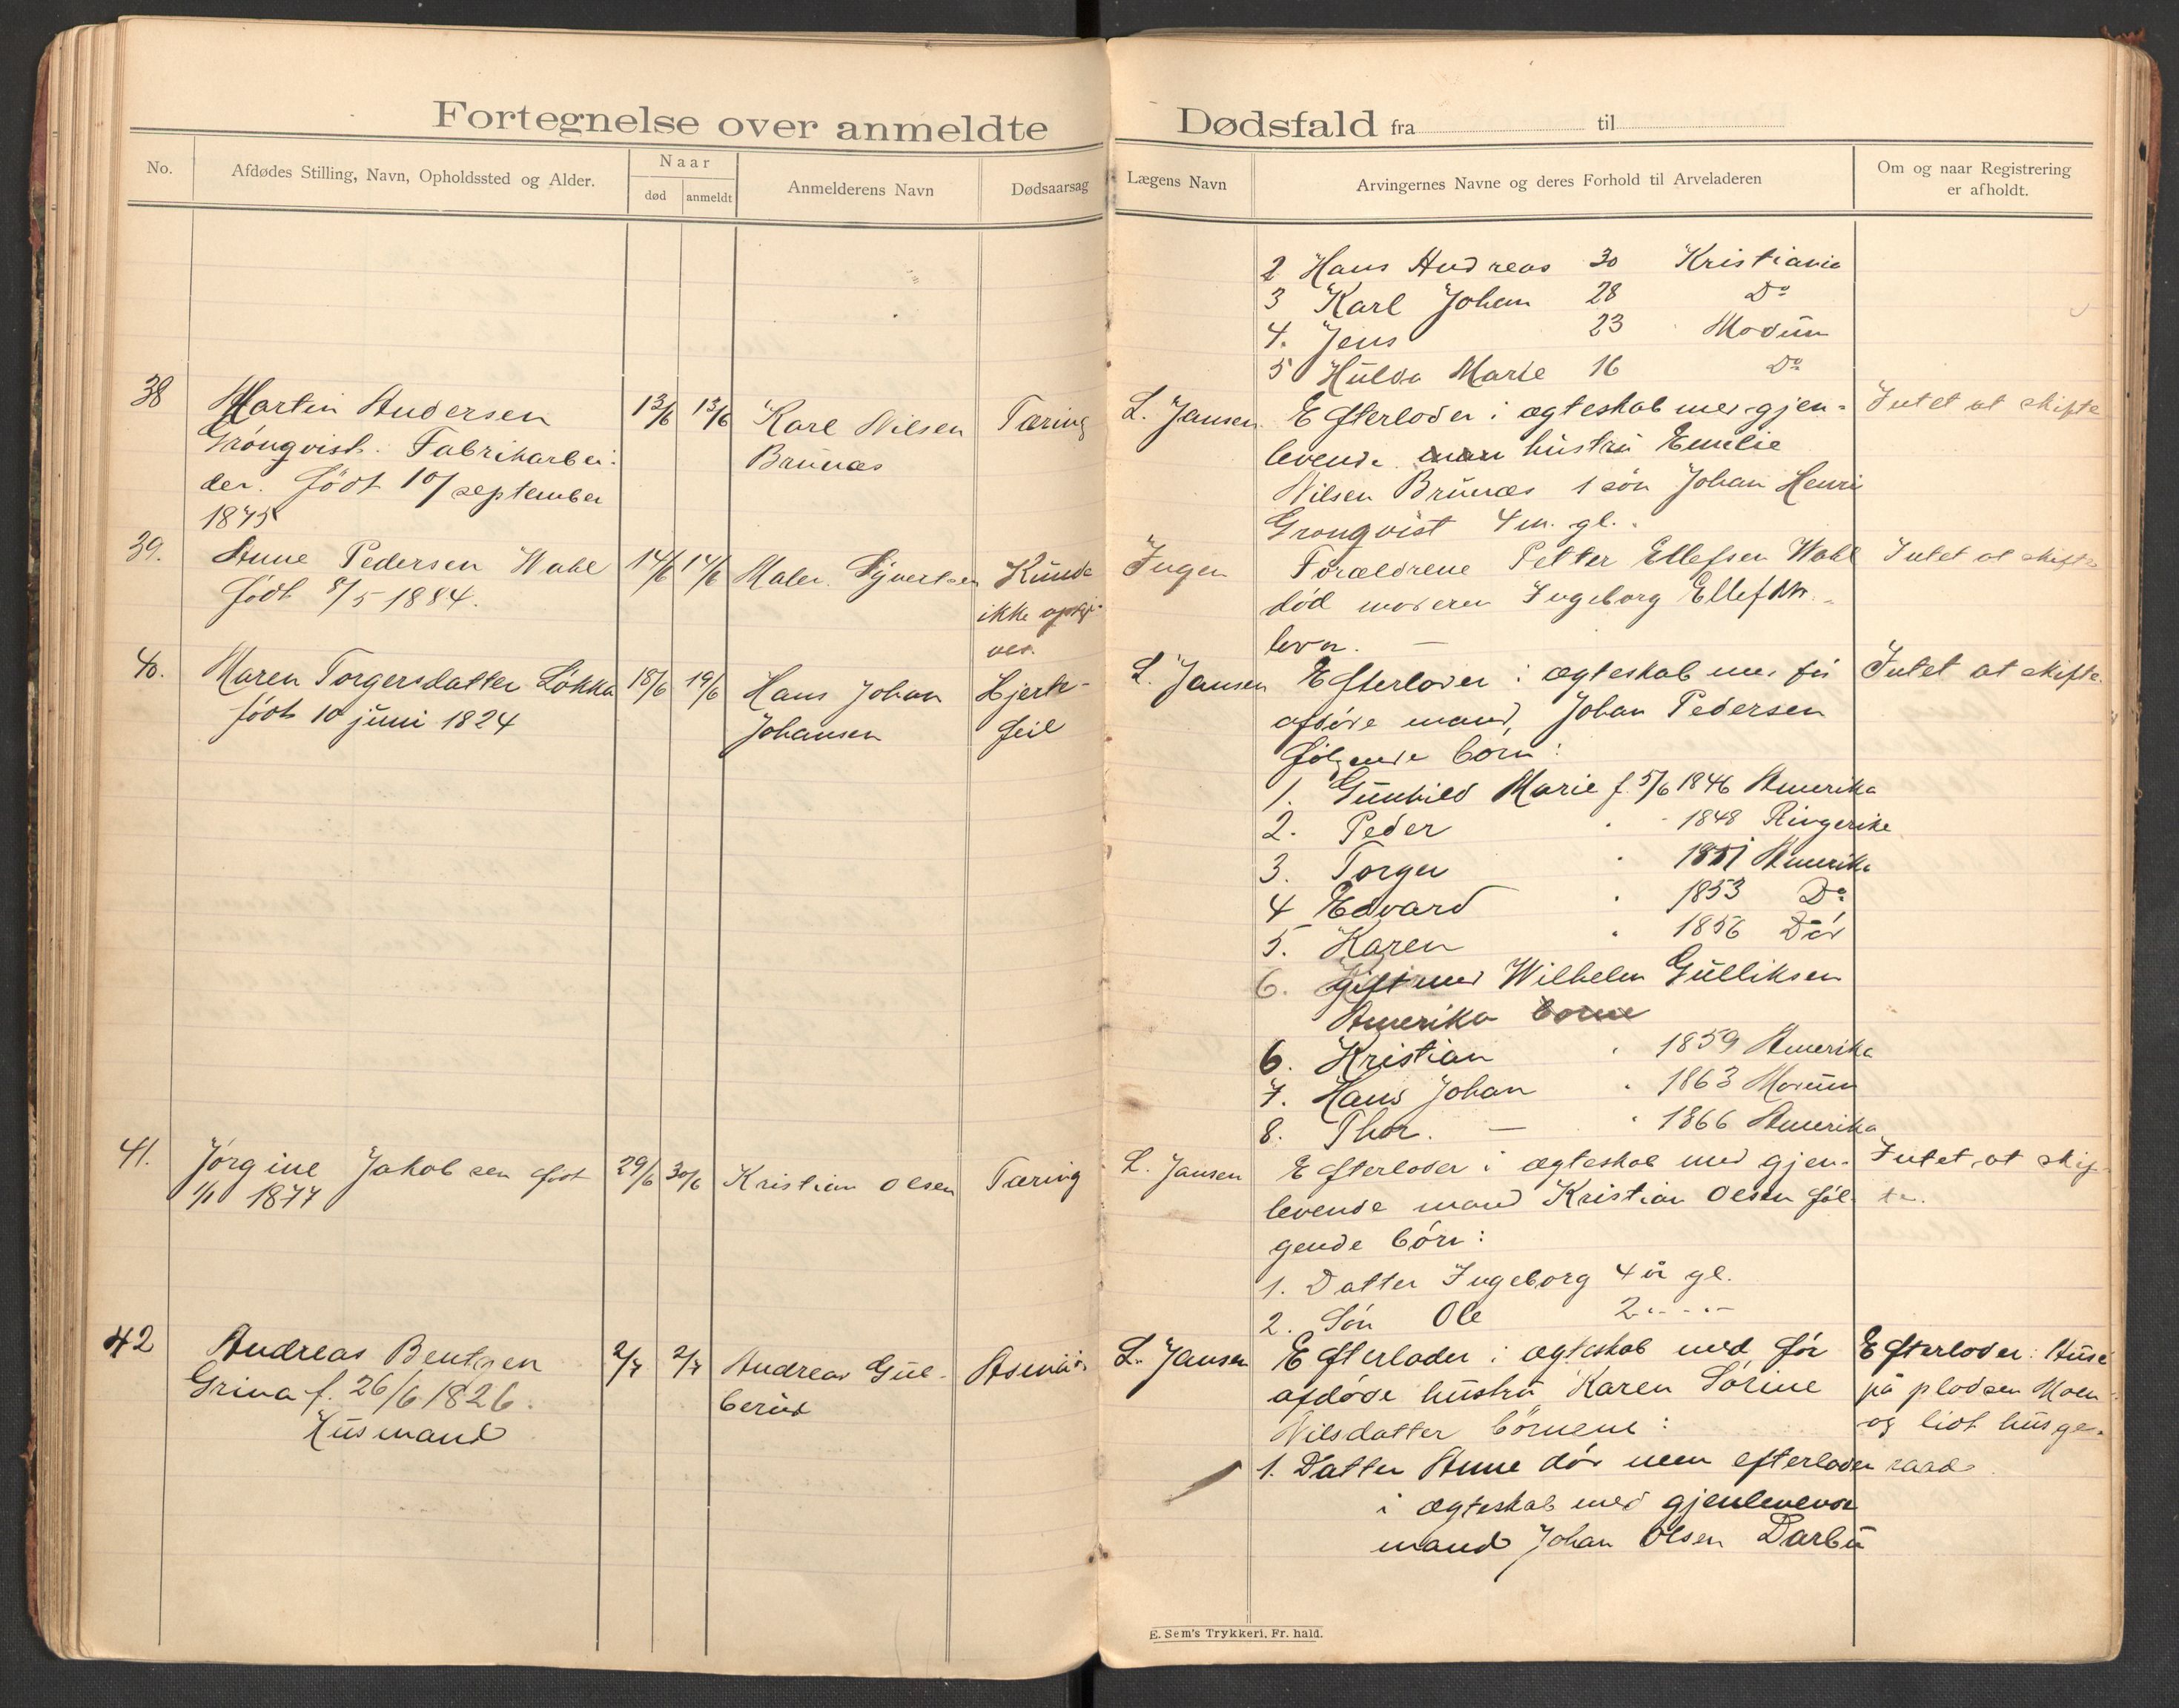 Fortegnelse over anmeldte Dødsfald fra til
No.
Afdødes Stilling, Navn, Opholdssted og Alder.
Naar
død anmeldt
Anmelderens Navn
Dødsaarsag
Lægens Navn
Arvingernes Navne og deres Forhold til Arveladeren
Om og naar Registrering
er afholdt.
2 Hans Andreas 30 Kristiania
3 Karl Johan 28 Do
4. Jens 23 Modum
5 Hulda Marie 16 Do
38 Martin Andersen 13/6 13/6 Karl Nilsen Tæring L. Jansen Efterlader i ægteskab med gjen- Intet at skifte
Grönqvist. Fabrikarbei- Brunæs levende man hustru Emilie
der. Född 10/ september Nilsen Brunæs 1 sön Johan Henri
1875 Gronqvist 4 m. gl.
39. Anne Pedersen Wahl 14/6 14/6 Maler Syvertsen Kunde Ingen Forældrene Petter Ellefsen Wahl Intet at skifte
född 8/5 1884. ikke opgi- död moderen Ingeborg Ellefdtr.
ves. lever. —
40. Maren Torgersdatter Lökka 18/6 19/6 Hans Johan Hjerte- L. Jansen Efterlader i ægteskab med för Intet at skifte.
född 10 juni 1824 Johansen feil afdöde mand Johan Pedersen
fölgende börn:
1. Gunhild Marie f. 5/6 1846 Amerika
2. Peder 1848 Ringerike
3. Torger 1851 Amerika
4 Edvard 1853 Do
5. Karen 1856 Död
6. gift med Wilhelm Gulliksen
Amerika börne
6. Kristian 1859 Amerika
7. Hans Johan 1863 Modum
8. Thor. — 1866 Amerika
41. Jörgine Jakobsen född 29/6 30/6 Kristian Olsen Tæring L. Jansen Efterlader i ægteskab med gjen- Intet at skif-
1/1 1877 levende mand Kristian Olsen föl- te.
gende börn:
1. Datter Ingeborg 4 år gl.
2. Sön Ole 2 - - -
42 Andreas Bentsen 2/7 2/7 Andreas Gul- L. Jansen Efterlader i ægteskab med för Efterlader: Huse
Grina f. 26/6 1826. berud afdöde hustru Karen Sörine på pladsen Moen
Husmand Nilsdatter börnene: og lidt husge-
1. Datter Anne död men efterlader raad
i ægteskab med gjenlevende
mand Johan Olsen Darbu
E. Sem's Trykkeri, Fr. hald.